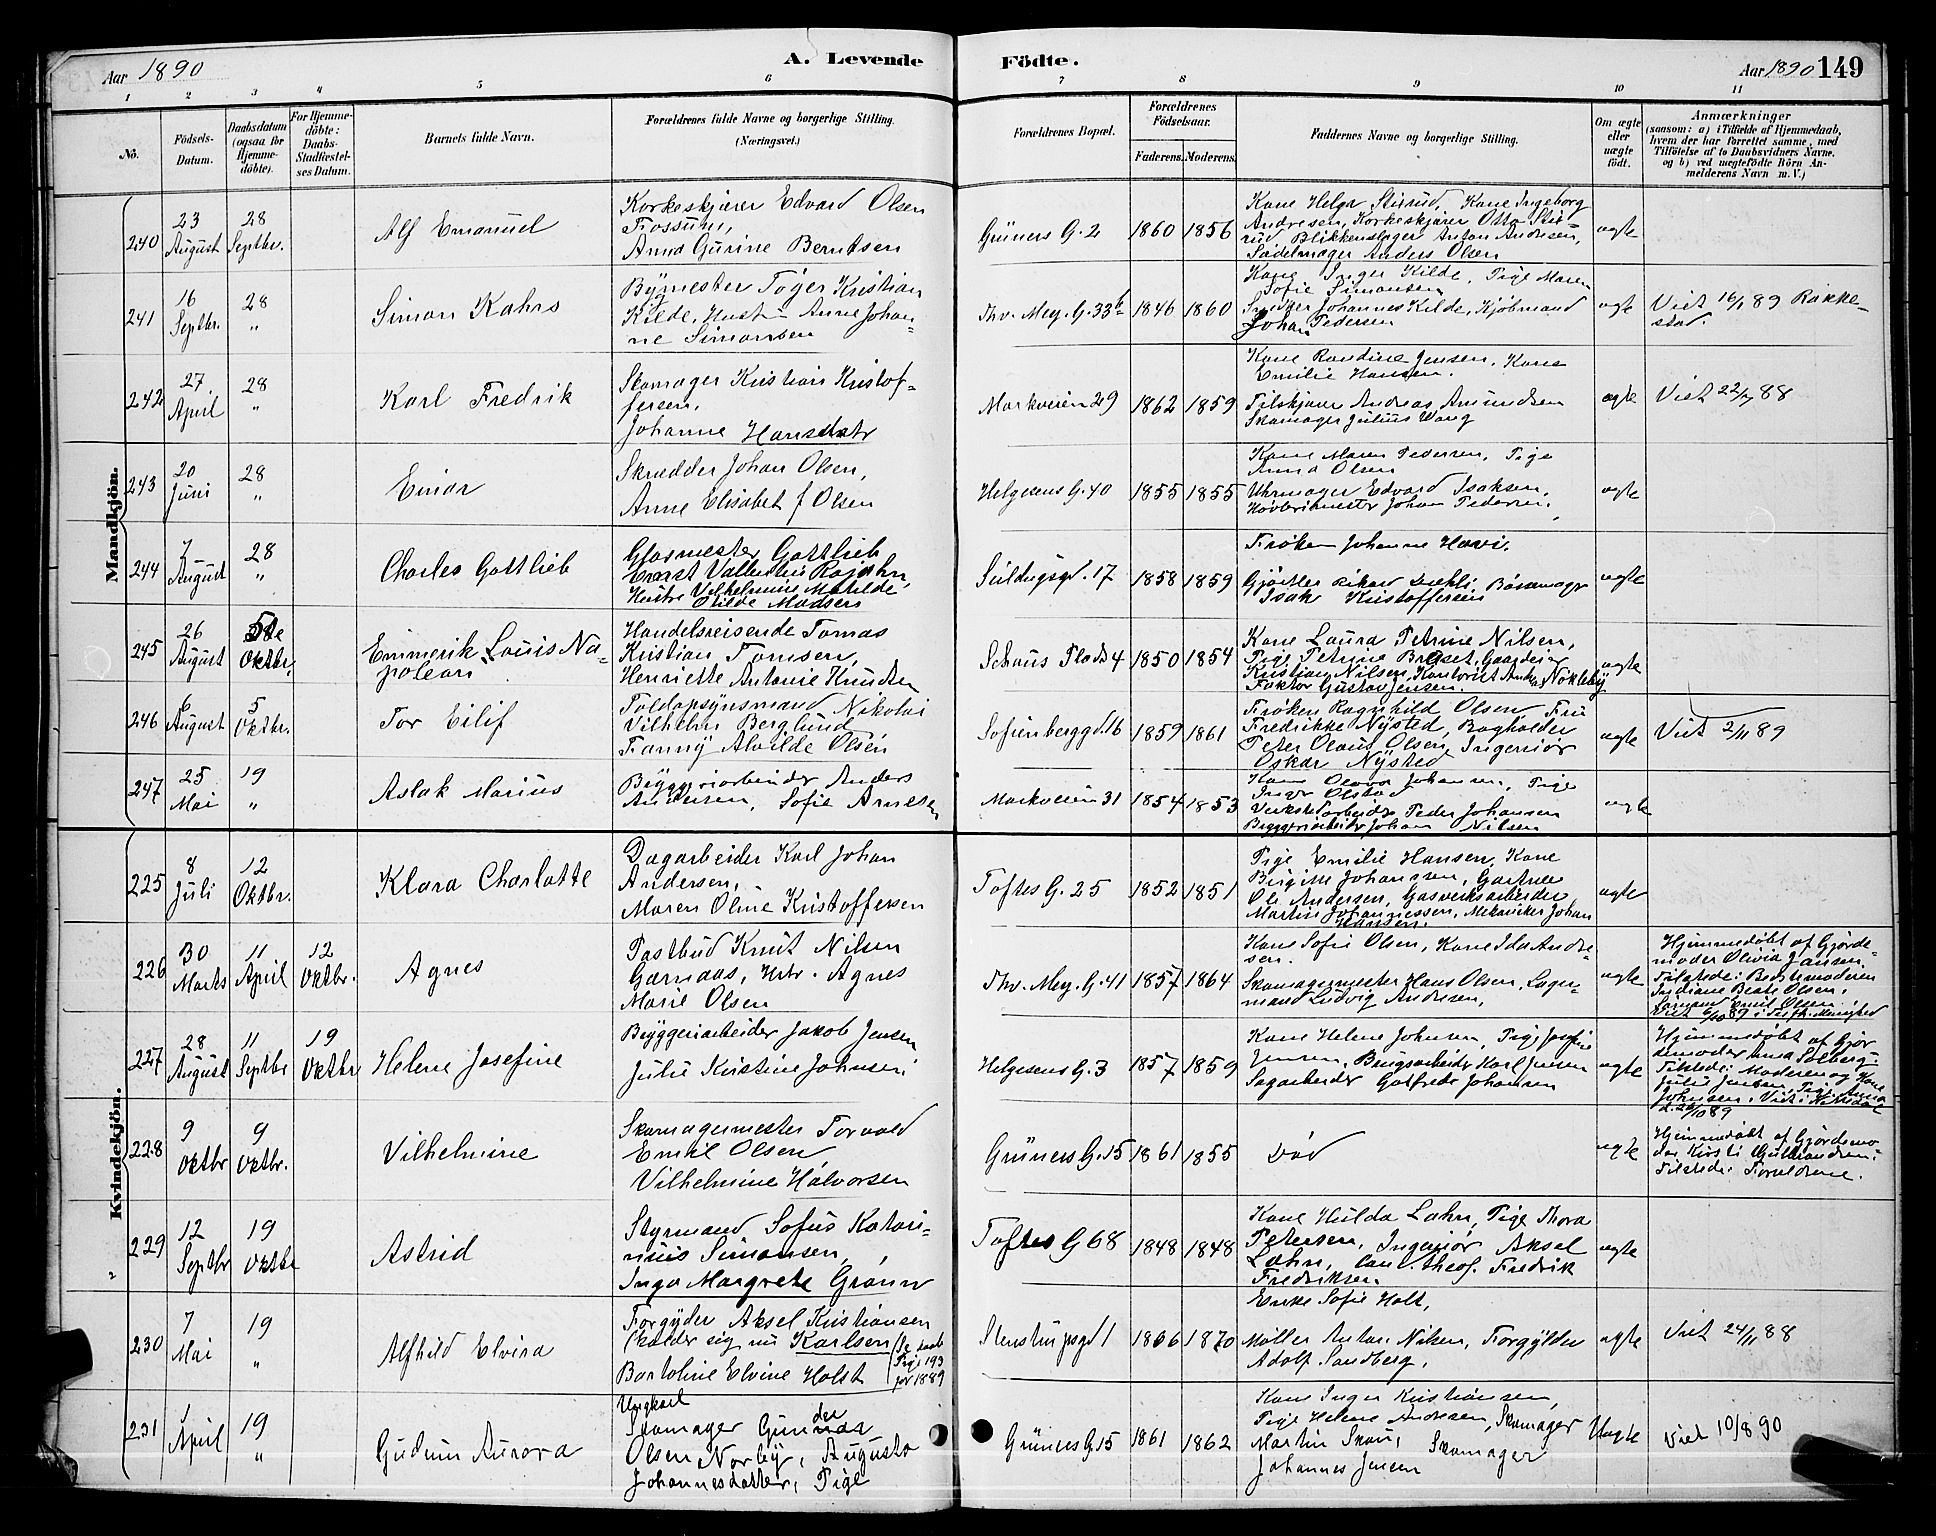 Aar 1890
A. Levende
Födte.
Aar 1890 149
1 2 3 4 5 6 7 8 9 10 11
No.
Födsels-
Datum.
Daabsdatum
(ogsaa for
Hjemme-
döbte).
For Hjemme-
döbte:
Daabs-
Stadfæstel-
ses Datum.
Barnets fulde Navn.
Forældrenes fulde Navne og borgerlige Stilling.
(Næringsvei.)
Forældrenes Bopæl.
Forældrenes
Födselsaar.
Faderens. Moderens.
Faddernes Navne og borgerlige Stilling.
Om ægte
eller
uægte
födt.
Anmærkninger
(saasom: a) i Tilfælde af Hjemmedaab,
hvem der har forrettet samme, med
Tilföielse af to Daabsvidners Navne.
og b) ved uægtefödte Börn An-
melderens Navn m. V.)
Mandkjön.
240
23
August
28
Septbr.
Alf Emanuel
Korkeskjærer Edvard Olsen
Fossum,
Anna Gurine Berntsen
Grüners G. 2
1860 1856
Kone Helga Stisrud, Kone Ingeborg
Andresen, Korkeskjærer Otto Stis
rud Blikkenslager Anton Andresen,
Sadelmager Anders Olsen
ægte
241
16
Septbr.
28
"
Simon Kahrs
Bygmester Töger Kristian
Kilde, Hust. Anne Johan-
ne Simonsen
Thv. Mey. G. 33b
1846 1860
Kone Inger Kilde, Pige Maren
Sofie Simonsen
Snedker Johannes Kilde, Kjøbmand
Johan Pedersen
ægte
Viet 16/1 89 Rakke-
stad.
242
27
April
28
"
Karl Fredrik
Skomager Kristian Kristof-
fersen,
Johanne Hansdatr
Markveien 29
1862 1859
Kone Randine Jensen, Kone
Emilie Hansen.
Filskjærer Andreas Amundsen
Skomager Julius Wang
ægte
Viet 22/7 88
243
20
Juni
28
"
Einar
Skrædder Johan Olsen,
Anne Elisabet f Olsen
Helgesens G. 40
1855 1855
Kone Maren Pedersen, Pige
Anna Olsen
Uhrmager Edvard Isaksen,
Høvlerimester Johan Pedersen.
ægte
244
7
August
28
"
Charles Gottlieb
Glasmester Gottlieb
Ernst Vallentin Rojahn,
Hustr Vilhelmine Matilde
Otilde Madsen
17
1858 1859
Frøken Johanne Hovi.
Gjørtler Rikard
Isak Kristoffersen
ægte
245
26
August
5te
Oktbr.
Emmerik Louis Na-
poleon
Handelsreisende Tomas
Kristian Tomsen,
Henriette Antonie Knudsen
Schous Plads 4
1850 1854
Kone Laura Petrine Nilsen,
Pige Petrine Braset, Gaardeier
Kristian Nilsen, Kontorist Nøkleby
Faktor Gustav Jensen.
ægte
246
6
August
5
Oktbr.
Tor Eilif
Toldopsynsmand Nikolai
Vilhelm Berglund
Fanny Alvilde Olsen
Sofienberggd. 16
1859 1861
Frøken Ragnhild Olsen Frü
Fredrikke Nysted, Bogholder
Peter Olaus Olsen, Ingeniør
Oskar Nysted
ægte
Viet 2/11 89
247
25
Mai
19
"
Aslak Marius
Byggeriarbeider Anders
Andersen, Sofie Arnesen
Markveien 31
1854 1853
Kone Olava Johansen, Pige
Inger Olstad
Verkstedarbeider Peder Johansen
Bryggeriarbeider Johan Nilsen
ægte
Kvindekjön.
225
8
Juli
12
Oktbr.
Klara Charlotte
Dagarbeider Karl Johan
Andersen,
Maren Oline Kristoffersen
Toftes G. 25
1852 1851
Pige Emilie Hansen, Kone
Birgitte Johanssen, Gartner
Ole Andersen, Gasverksarbeider
Martin Johannessen, Mekaniker Johan
Hansen.
ægte
226
30
Marts
11
April
12
Oktbr.
Agnes
Postbud Knut Nilsen
Garnaas, Hstr. Agnes
Marie Olsen
Thv. Mey. G. 41
1857 1864
Kone Sofie Olsen, Kone Ida Andre-
sen.
Skomagermester Hans Olsen, Lager-
mand Ludvig Andresen,
ægte
Hjemmedøbt af Gjorde-
moder Olivia Jansen
Tilstede: Bestemoderen
Indiane Beate Olsen,
Sømand Emil Olsen
Viet 6/10 89 i Frih. Menighed
227
28
August
11
Septbr
19
Oktbr
Helene Josefine
Bryggeriarbeider Jakob Jensen
Julie Kristine Johnsen
Helgesens G. 3
1857 1859
Kone Helene Johnsen, Pige Josefine
Jensen, Brugsarbeider Karl Jensen
Sagarbeider Gotfred Johansen
ægte
Hjemmedøbt af Gjor
demoder Anna Solberg
Tilstede: Moderen og Kone
Julie Jensen, Pige Anna
Johnsen. Viet i
d. 20/10 89
228
9
Oktbr
9
Oktbr.
Vilhelmine
Skomagermester Torvald
Emil Olsen
Vilhelmine Halvorsen
Grüners G. 15
1861 1855
Død
ægte
Hjemmedøbt af Gjordemo
der Kirsti Gulbrandsen
Tilstede: Forældrene.
229
12
Septbr
19
Oktbr
Astrid
Styrmand Sofus Katari-
nus Simonsen,
Inga Margrete Grønn
Toftes G 68
1848 1848
Kone Hulda Lahn, Pige Thora
Petersen, Ingeniør Aksel
Lahn, Cand. theol. Fredrik
Fredriksen
ægte
230
7
Mai
19
"
Alfhild Elvira
Forgylder Aksel Kristiansen
(kalder sig nu Karlsen
Bartoline Elvine Holst
Stenstrupsgd 1
1866 1870
Enke Sofie Holt,
Møller Anton Nilsen, Forgylder
Adolf Sandberg,
ægte
Viet 24/11 88
231
1
April
19
"
Gudrun Aurora
Ungkarl
Skomager Gunnder
Olsen Norby, Augusta
Johannesdatter, Pige
Grüners G 15
1861 1862
Kone Inger Kristiansen,
Pige Helene Andresen, Skomager
Martin Skou, Skomager
Johannes Jensen
Uægte
Viet 10/8 90